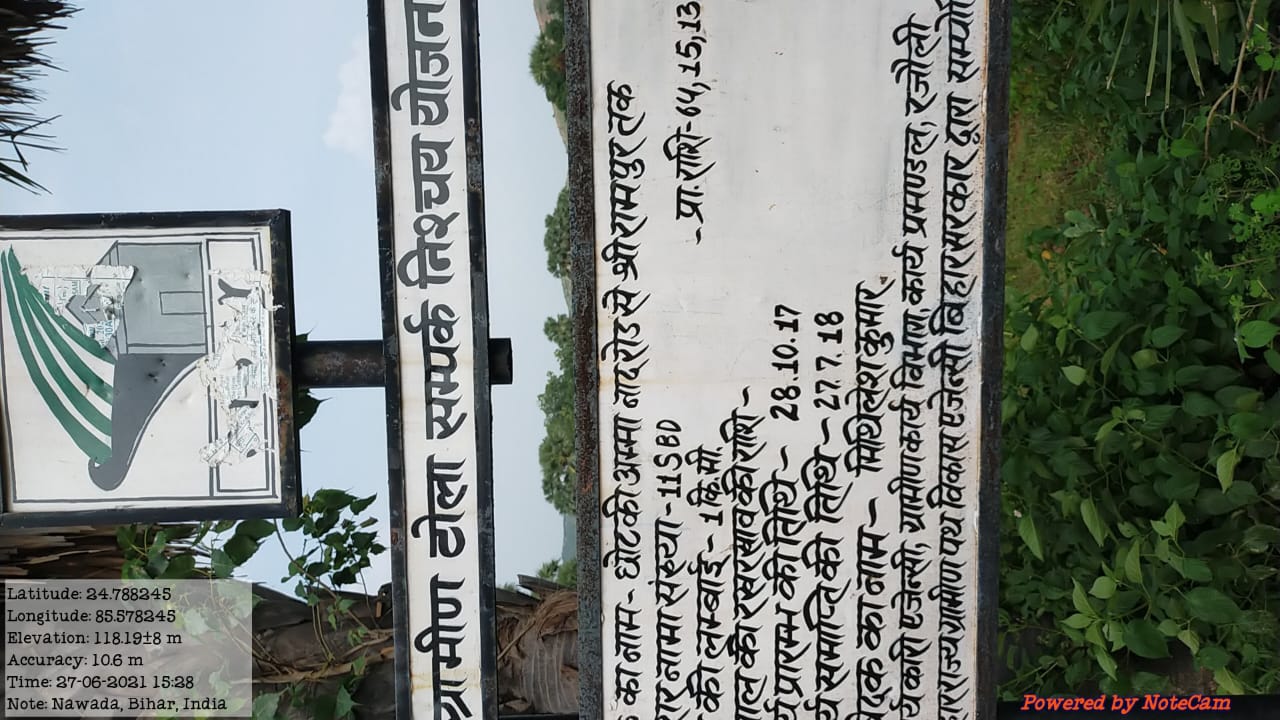 ग्रामीण टोला सम्पर्क निश्चय योजन
का नाम - छोटकी अम्मा नादरोड से श्रीरामपुर तक
नामा संख्या - 11SBD - प्रा.राशि - 64,15,13
की लम्बाई - 1 कि.मी.
साल की रखरखाव की राशि -
र्य प्रारम्भ की तिथि - 28.10.17
र्य समाप्ति की तिथि - 27.7.18
का नाम - मिथिलेश कुमार
र्यकारी एजेन्सी, ग्रामीण कार्य विभाग, कार्य प्रमण्डल, रजौली
ग्रामीण पथ विकास एजेन्सी बिहार सरकार द्वारा
Latitude: 24.788245
Longitude: 85.578245
Elevation: 118.19±8 m
Accuracy: 10.6 m
Time: 27-06-2021 15:28
Note: Nawada, Bihar, India
Powered by NoteCam